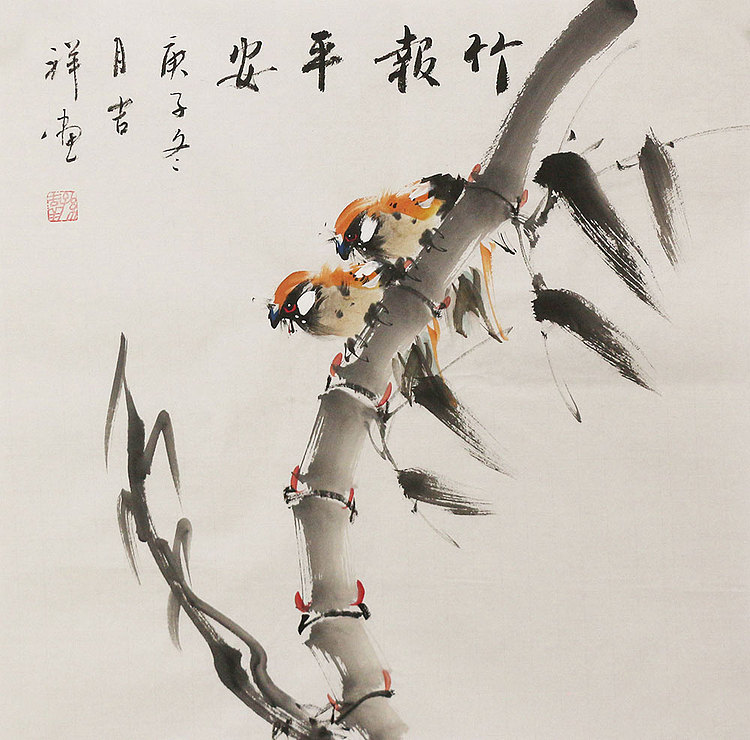 竹報平安
庚子冬
月吉
祥畫